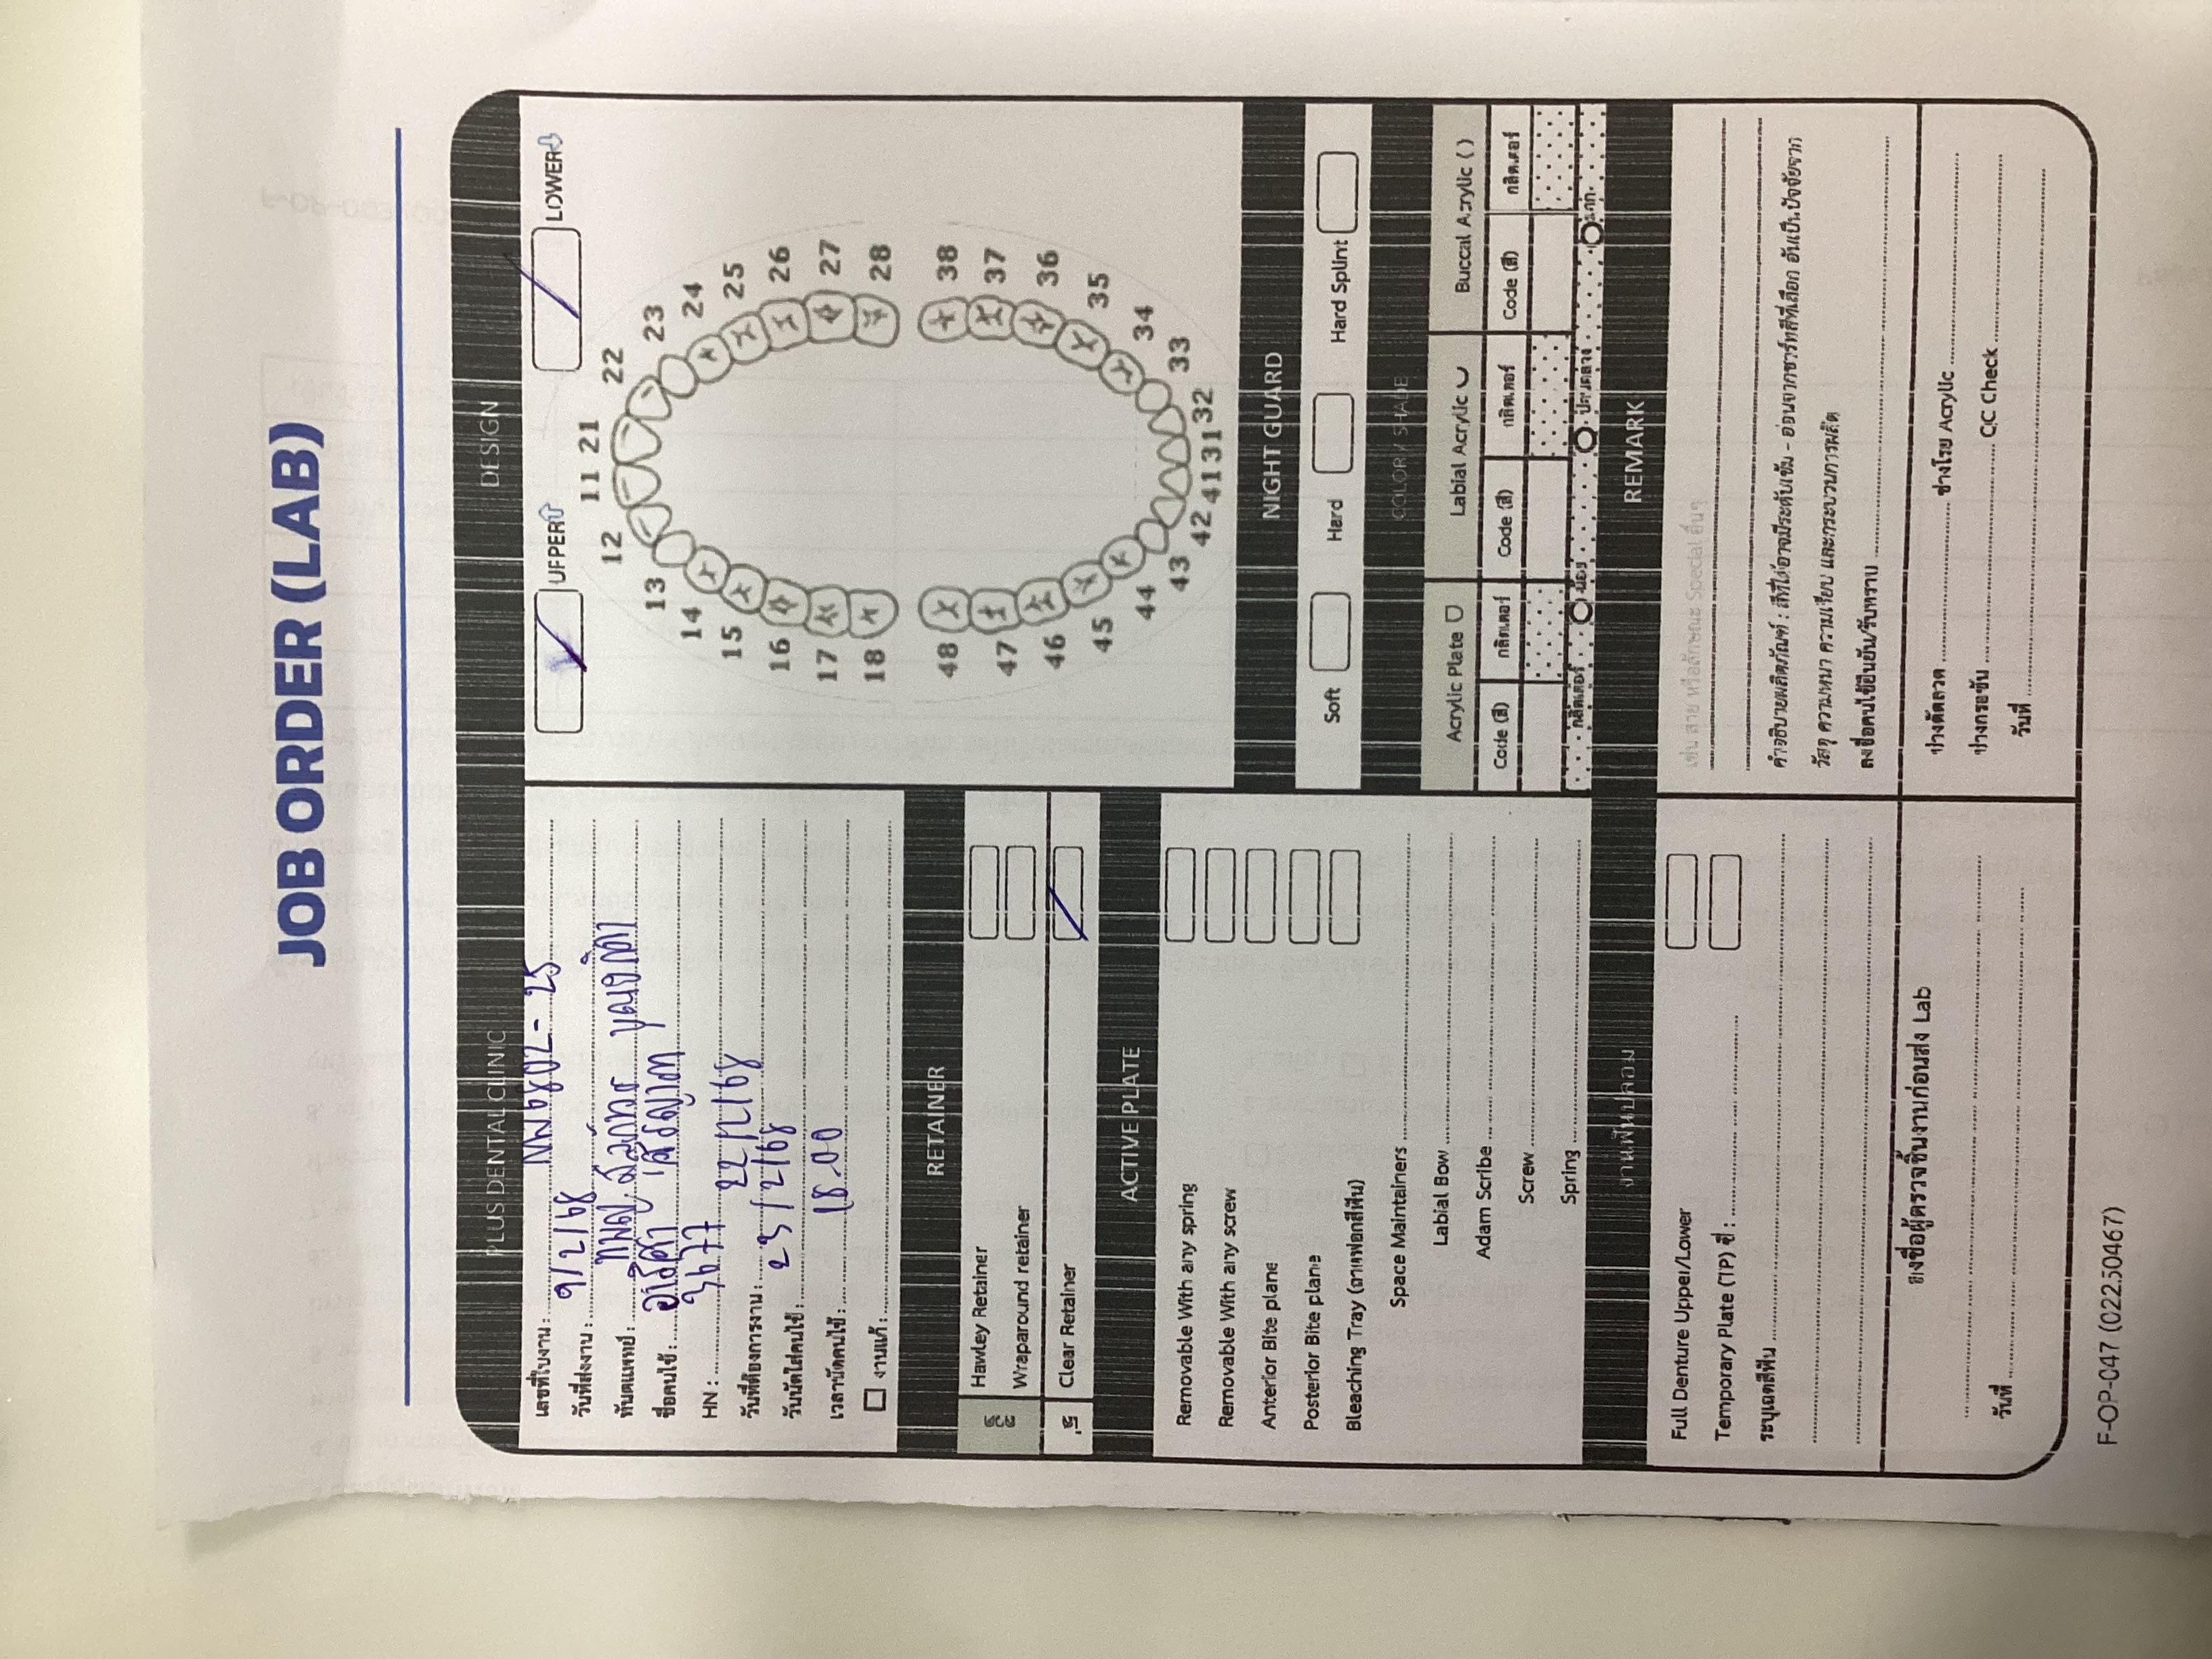 JOB ORDER (LAB)
PLUS DENTAL CLINIC
เลขที่ใบงาน : 6802-25
วันที่ส่งงาน : 9/2/68
ทันตแพทย์ : ทพญ.
ชื่อคนไข้ :
HN : 3677
วันที่ต้องการงาน : 22/2/68
วันนัดใส่คนไข้ : 23/2/68
เวลานัดคนไข้ : 18.00
งานแก้ :
RETAINER
ลวด
Hawley Retainer
Wraparound retainer
Clear Retainer
ACTIVE PLATE
Removable With any spring
Removable With any screw
Anterior Bite plane
Posterior Bite plane
Bleaching Tray (ถาดฟอกสีฟัน)
Space Maintainers
Labial Bow
Adam Scribe
Screw
Spring
งานฟันปลอม
Full Denture Upper/Lower
Temporary Plate (TP) ซี่ :
ระบุเฉดสีฟัน
ลงชื่อผู้ตรวจชิ้นงานก่อนส่ง Lab
วันที่
DESIGN
UPPER LOWER
11 21
12 22
13 23
14 24
15 25
16 26
17 27
18 28
48 38
47 37
46 36
45 35
44 34
43 33
42 41 31 32
NIGHT GUARD
Soft Hard Hard Splint
COLOR / SHADE
Acrylic Plate Labial Acrylic Buccal Acrylic ( )
Code (สี) กลิตเตอร์ Code (สี) กลิตเตอร์ Code (สี) กลิตเตอร์
กลิตเตอร์ น้อย ปานกลาง มาก
REMARK
เช่น ลาย หรือลักษณะ Special อื่นๆ
คำอธิบายผลิตภัณฑ์ : สีที่ได้อาจมีระดับเข้ม - อ่อนจากชาร์ทสีที่เลือก อันเป็นปัจจัยจาก
วัสดุ ความหนา ความเรียบ และกระบวนการผลิต
ลงชื่อคนไข้ยืนยัน/รับทราบ
ช่างดัดลวด ช่างโรย Acrylic
ช่างกรอขัน QC Check
วันที่
F-OP-047 (02250467)